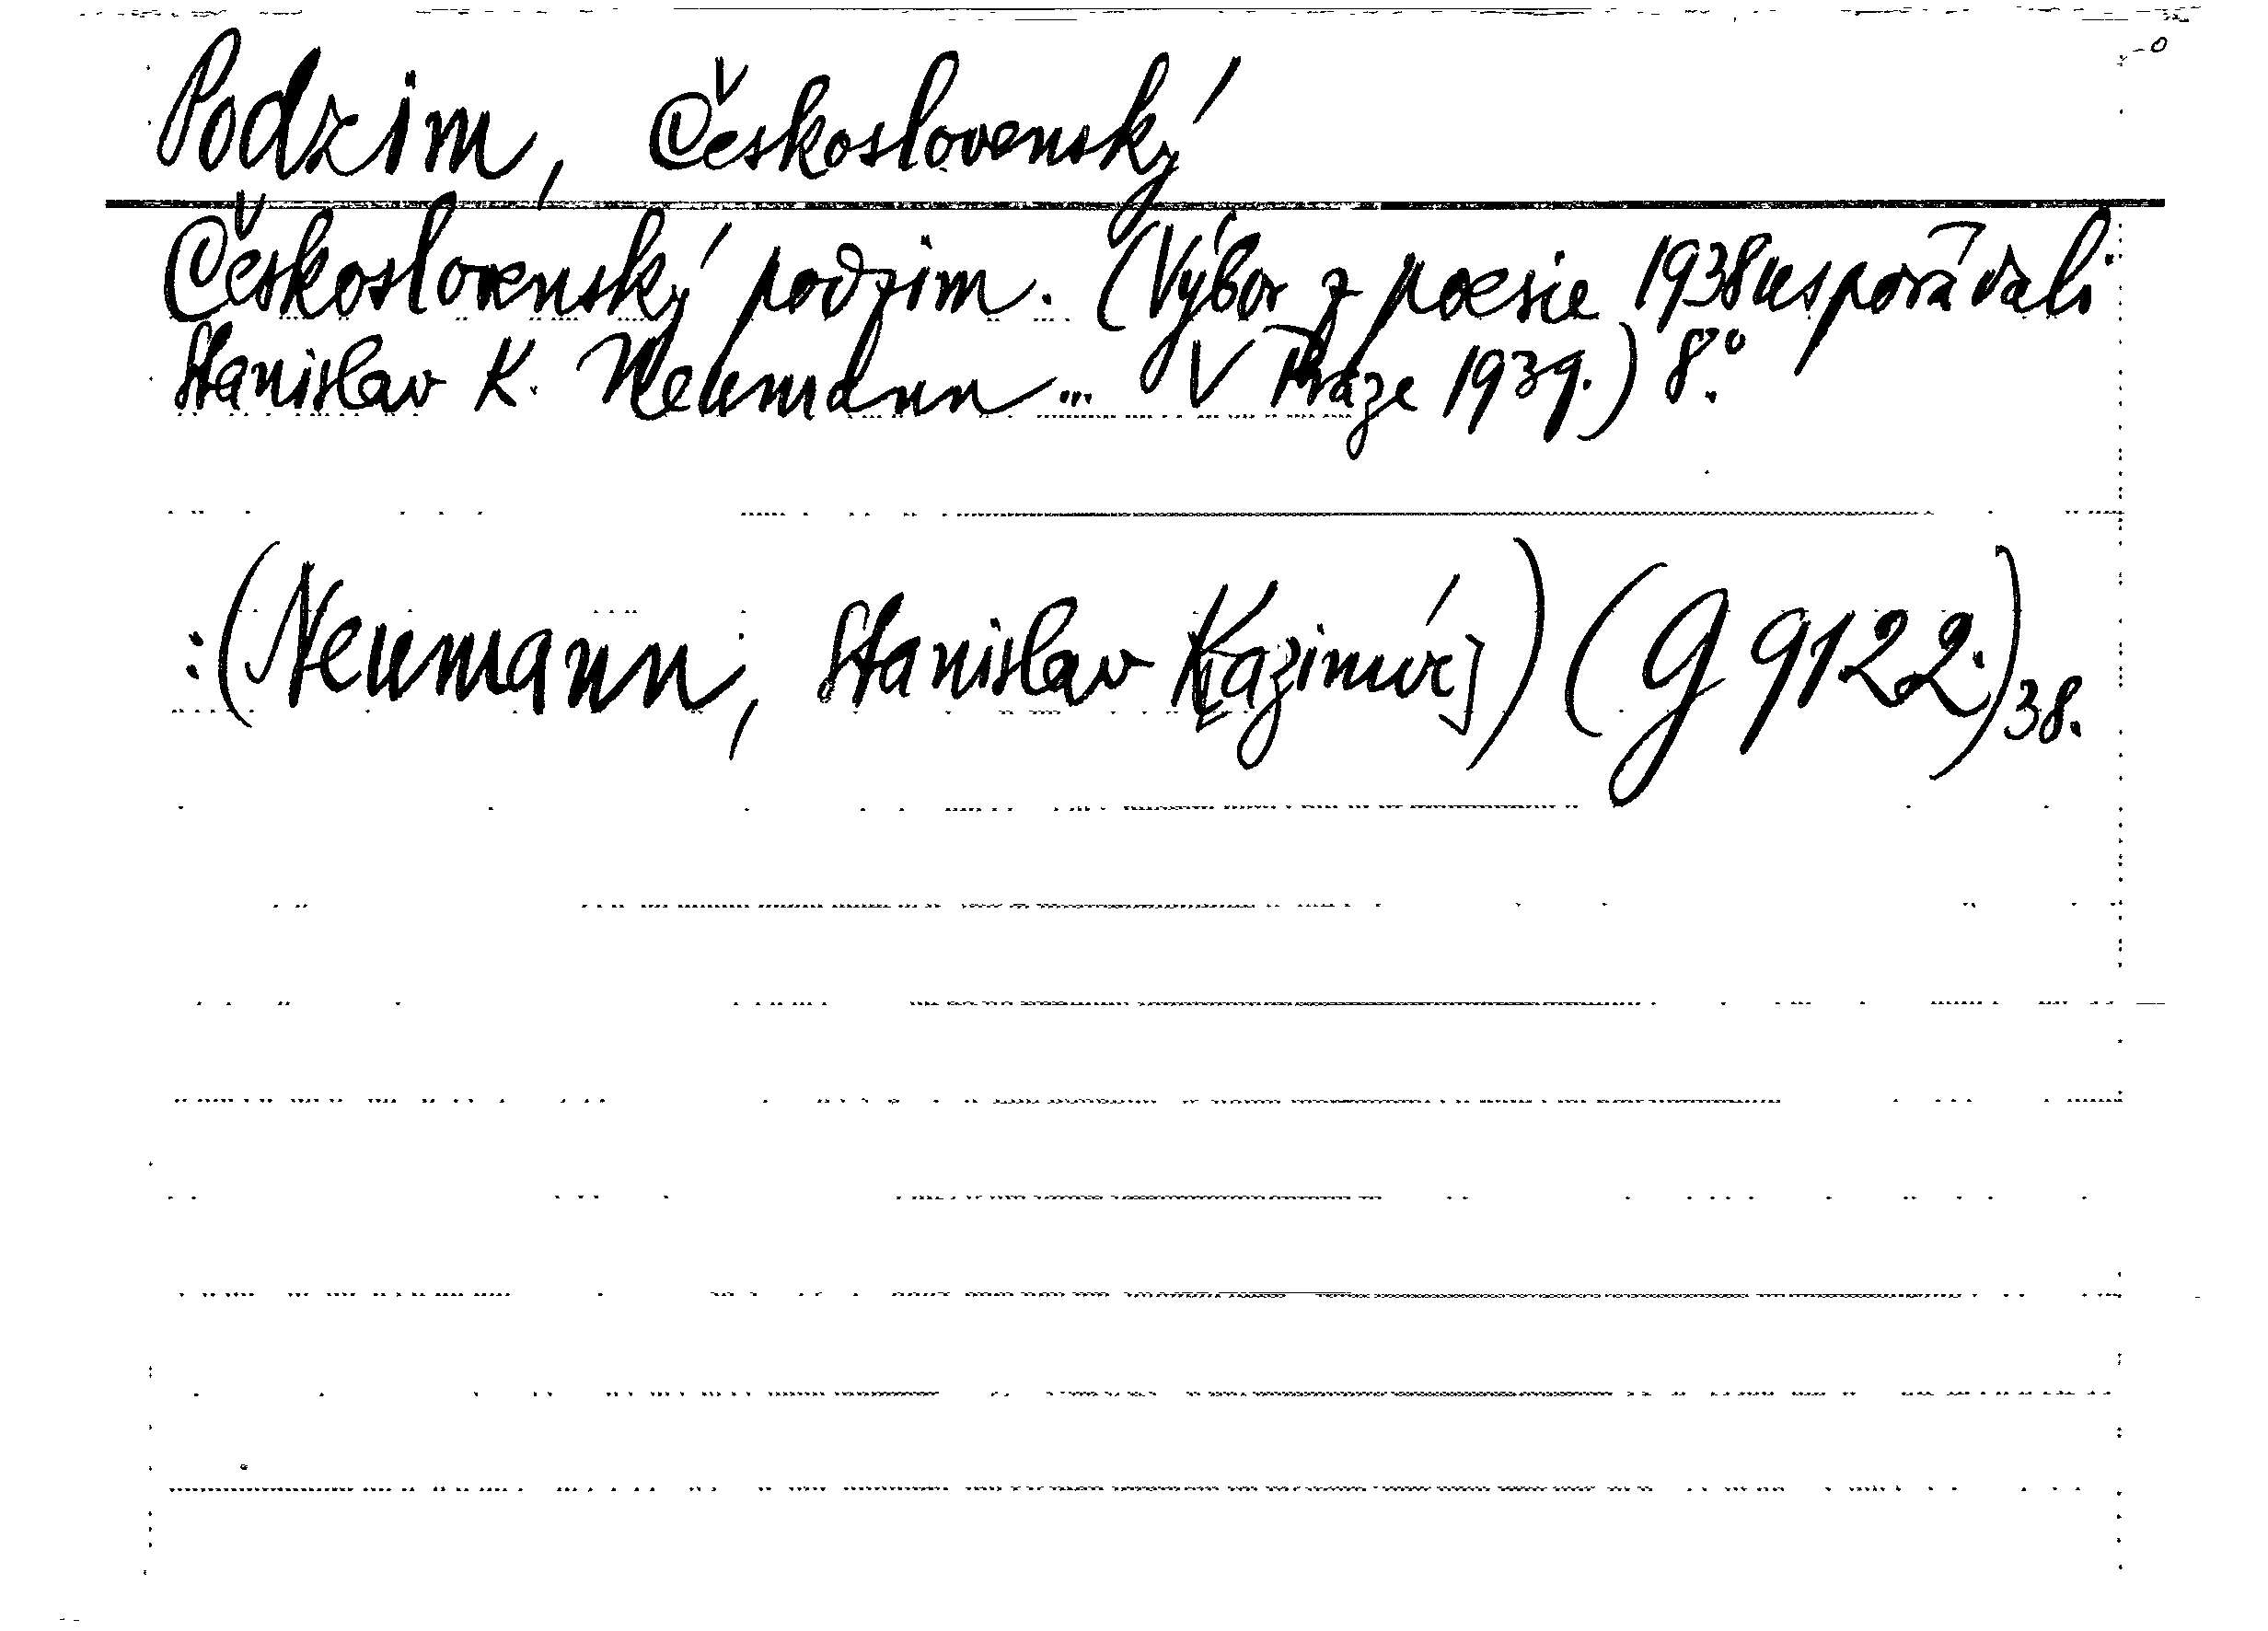 Podzim, Československý
Československý podzim. (Výbor z poesie 1938 uspořádali
Stanislav K. Neumann... V Praze 1939.) 8.°
:(Neumann, Stanislav K[azimír]) (G 9122.)38.